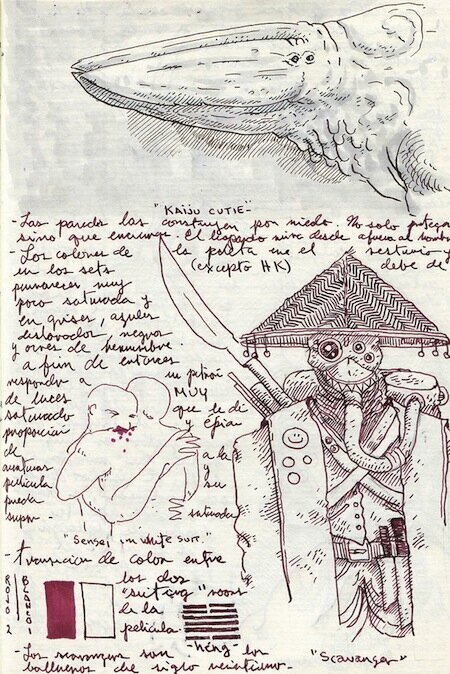 "KAIJU CUTIE"
- Las paredes las construyen por miedo. No solo protegen
sino que encierran. El mira desde afuera al hombre
- Los colores de la paleta en el vestuario y
en los sets (excepto HK) debe de
permanecer muy
poco saturada y
en grises, azules
deslavados, negros
y ocres de herrumbre
a fin de entonces
responder a un patrón
de luces MUY
saturado que le dé
proporción y épica
de a la
película y
pueda su
saturada
"Sensei in white suit."
- transición de color entre
los dos
"suiting" rooms
de la
película.
ROJO 2
BLANCO 1
- Los scavanger son - héng - los
balleneros de siglo veintiuno.
"Scavanger"